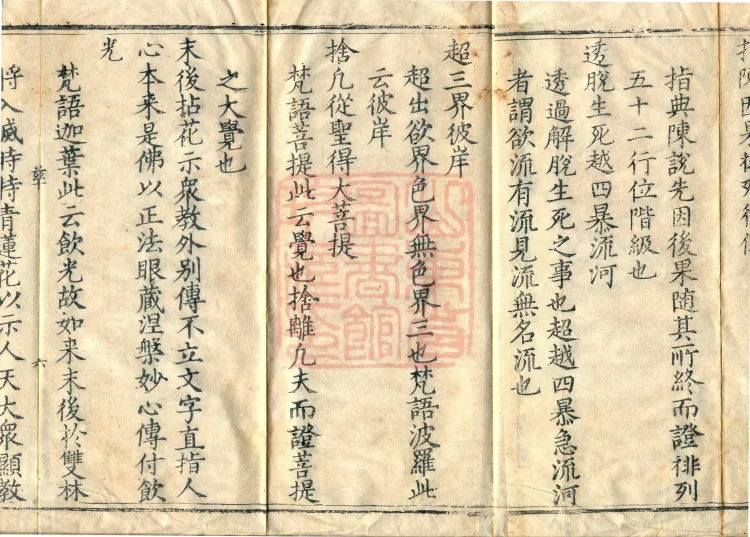 指典陳說先因後果随其所終而證排列
五十二行位階級也
透脫生死越四暴流河
透過解脫生死之事也超越四暴急流河
者謂欲流有流見流無名流也
超三界彼岸
超出欲界色界無色界三也梵語波羅此
云彼岸
捨凡從聖得大菩提
梵語菩提此云覺也捨離凡夫而證菩提
之大覺也
末後拈花示衆教外别傳不立文字直指人
心本来是佛以正法眼蔵涅槃妙心傳付飲
光
梵語迦葉此云飲光故如来末後於雙林
六
将入滅時持青蓮花以示人天大衆顯教